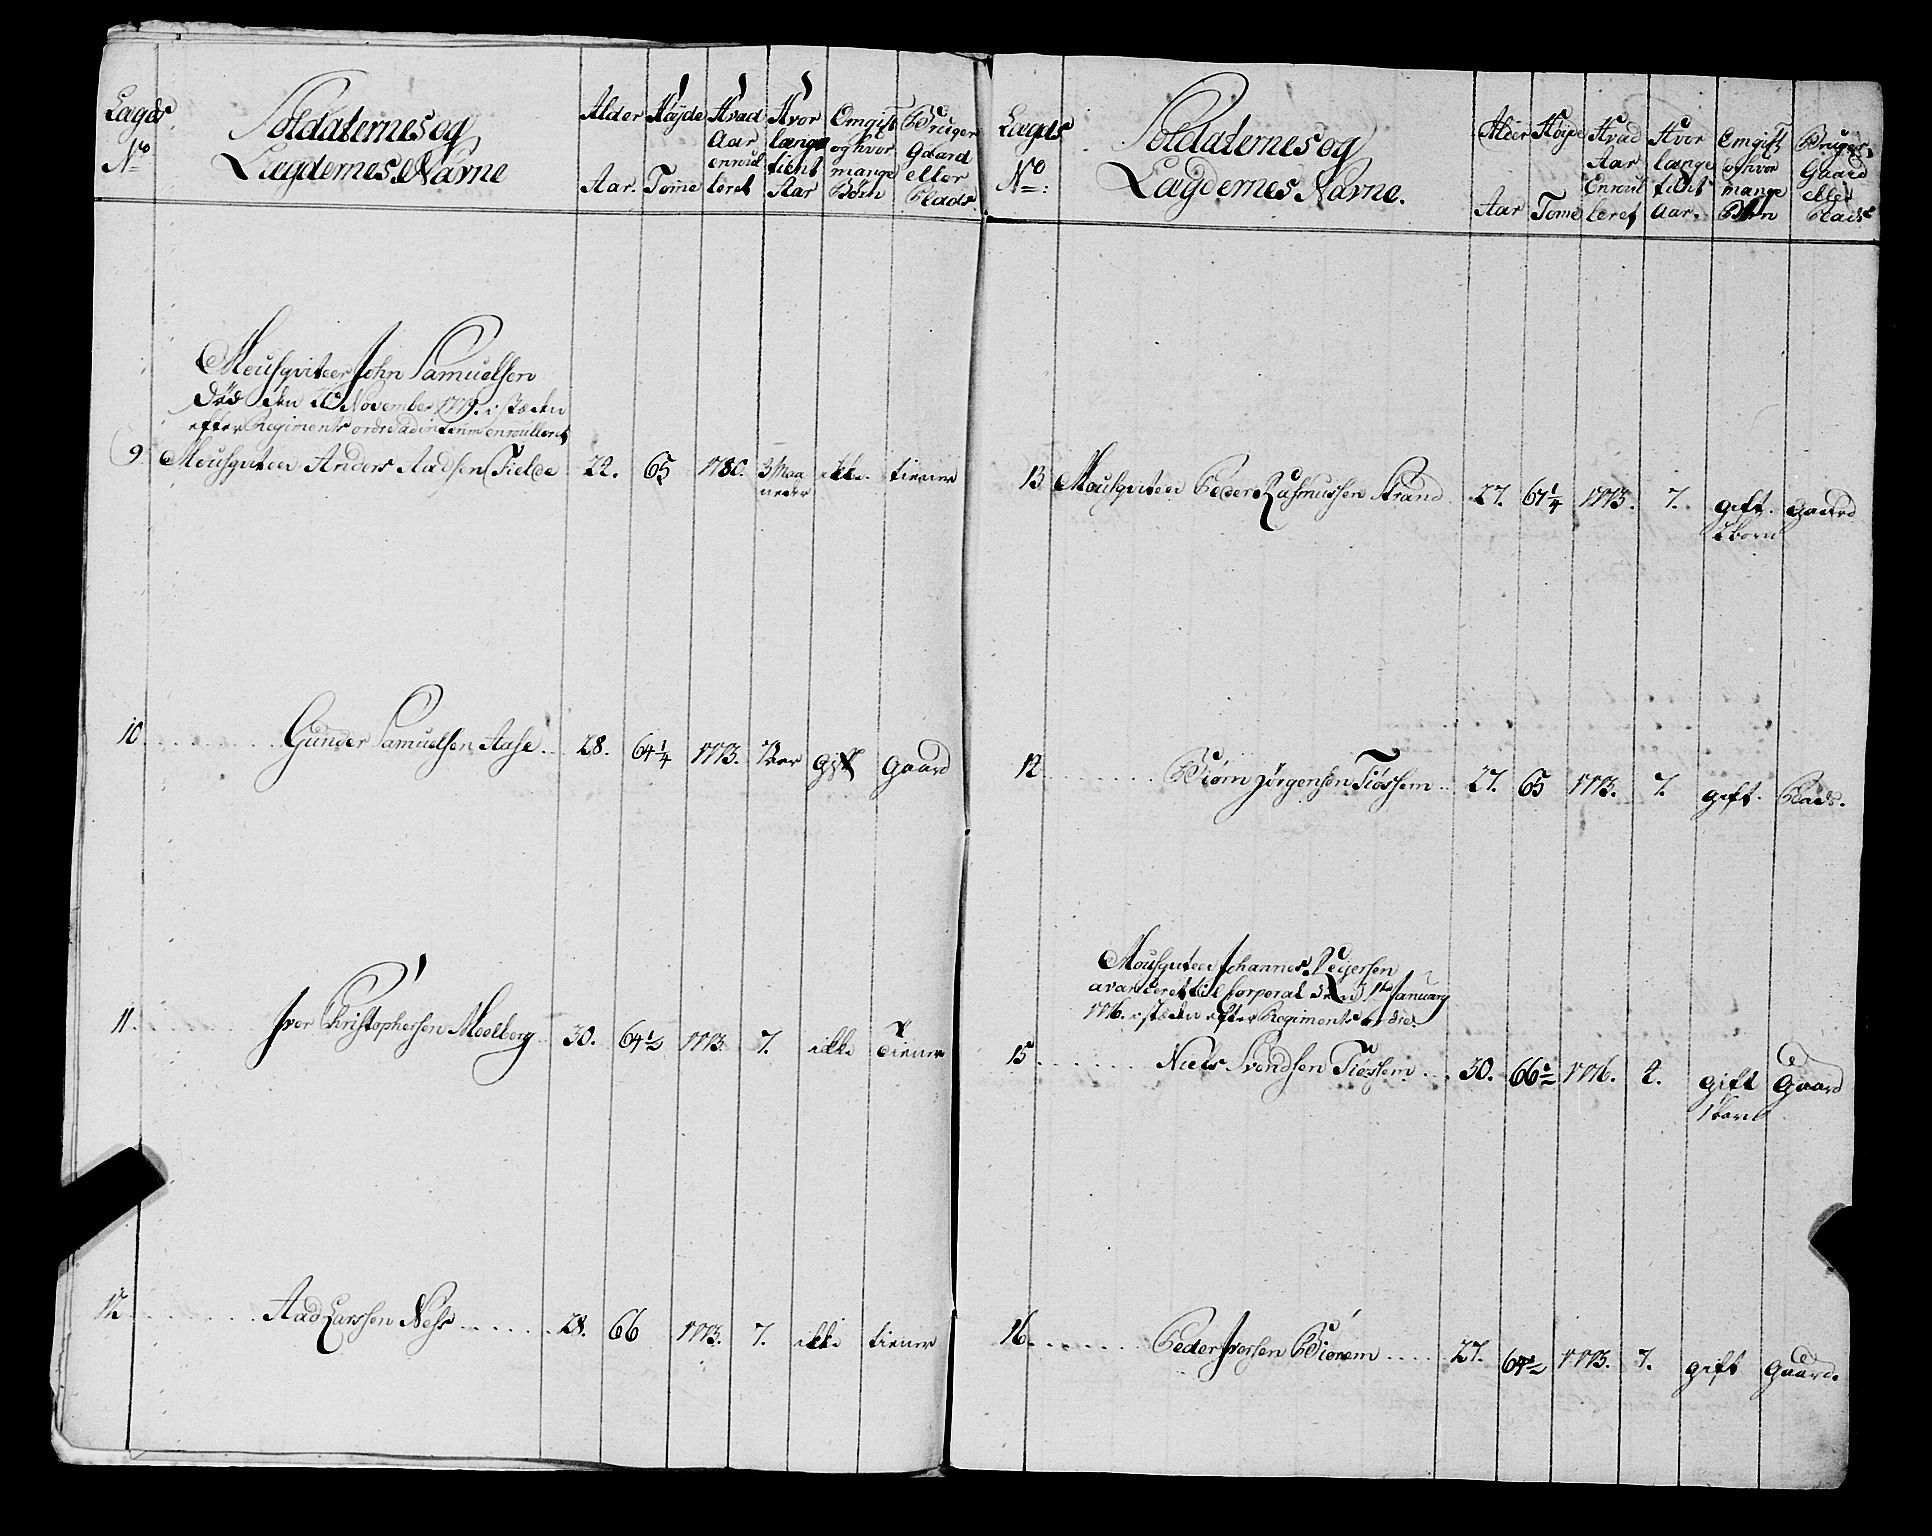 Lægds
No
Soldaternes og
Lægdernes Navne
Alder
Aar.
Høyde
Tome
Hvad
Aar
enroul
leret
Hvor
længe
tient
Aar
Om gift
og hvor
mange
Börn
Bruger
Gaard
eller
Plads.
Mousqviteer John Samuelsen
död den 26 November 1779. i stæden
efter Regiments ordre ad interim enroulleret
9. Mousqviteer Anders Aadsen Fielde 22. 65 1780. 3 Maa ikke. tiener
neder
10. Gunder Samuelsen Aase 28. 64 1/4 1773. 7 aar gift gaard
11. Iver Christophersen Meelberg 30. 64 1/2 1773. 7. ikke tiener
12. Aad Larssen Ness 28. 66 1773. 7. ikke tiener
Lægds
No:
Soldaternes og
Lægdernes Navne.
Alder
Aar
Høyde
Tome
Hvad
Aar
Enroul
leret
Hvor
længe
tient
Aar.
Om gift
og hvor
mange
Börn
Bruger
Gaard
eller
Plads
13 Mousqviteer Peder Rasmussen Strand 27. 67 1/4 1773. 7. gift. gaard
born
14 Biörn Jörgensen Tiössem 27. 65 1773. 7. gift. Plads.
Mousqviteer Johannes Regersen
avanceret til Corporal den 1te January
1776. i stæden efter Regiments Ordre.
15 Niels Svendsen Tiössem 30. 66 1/2 1776. 4. gift Gaard
1 barn
16. Peder Iversen Biörem 27. 64 1/2 1773. 7. gift gaard.